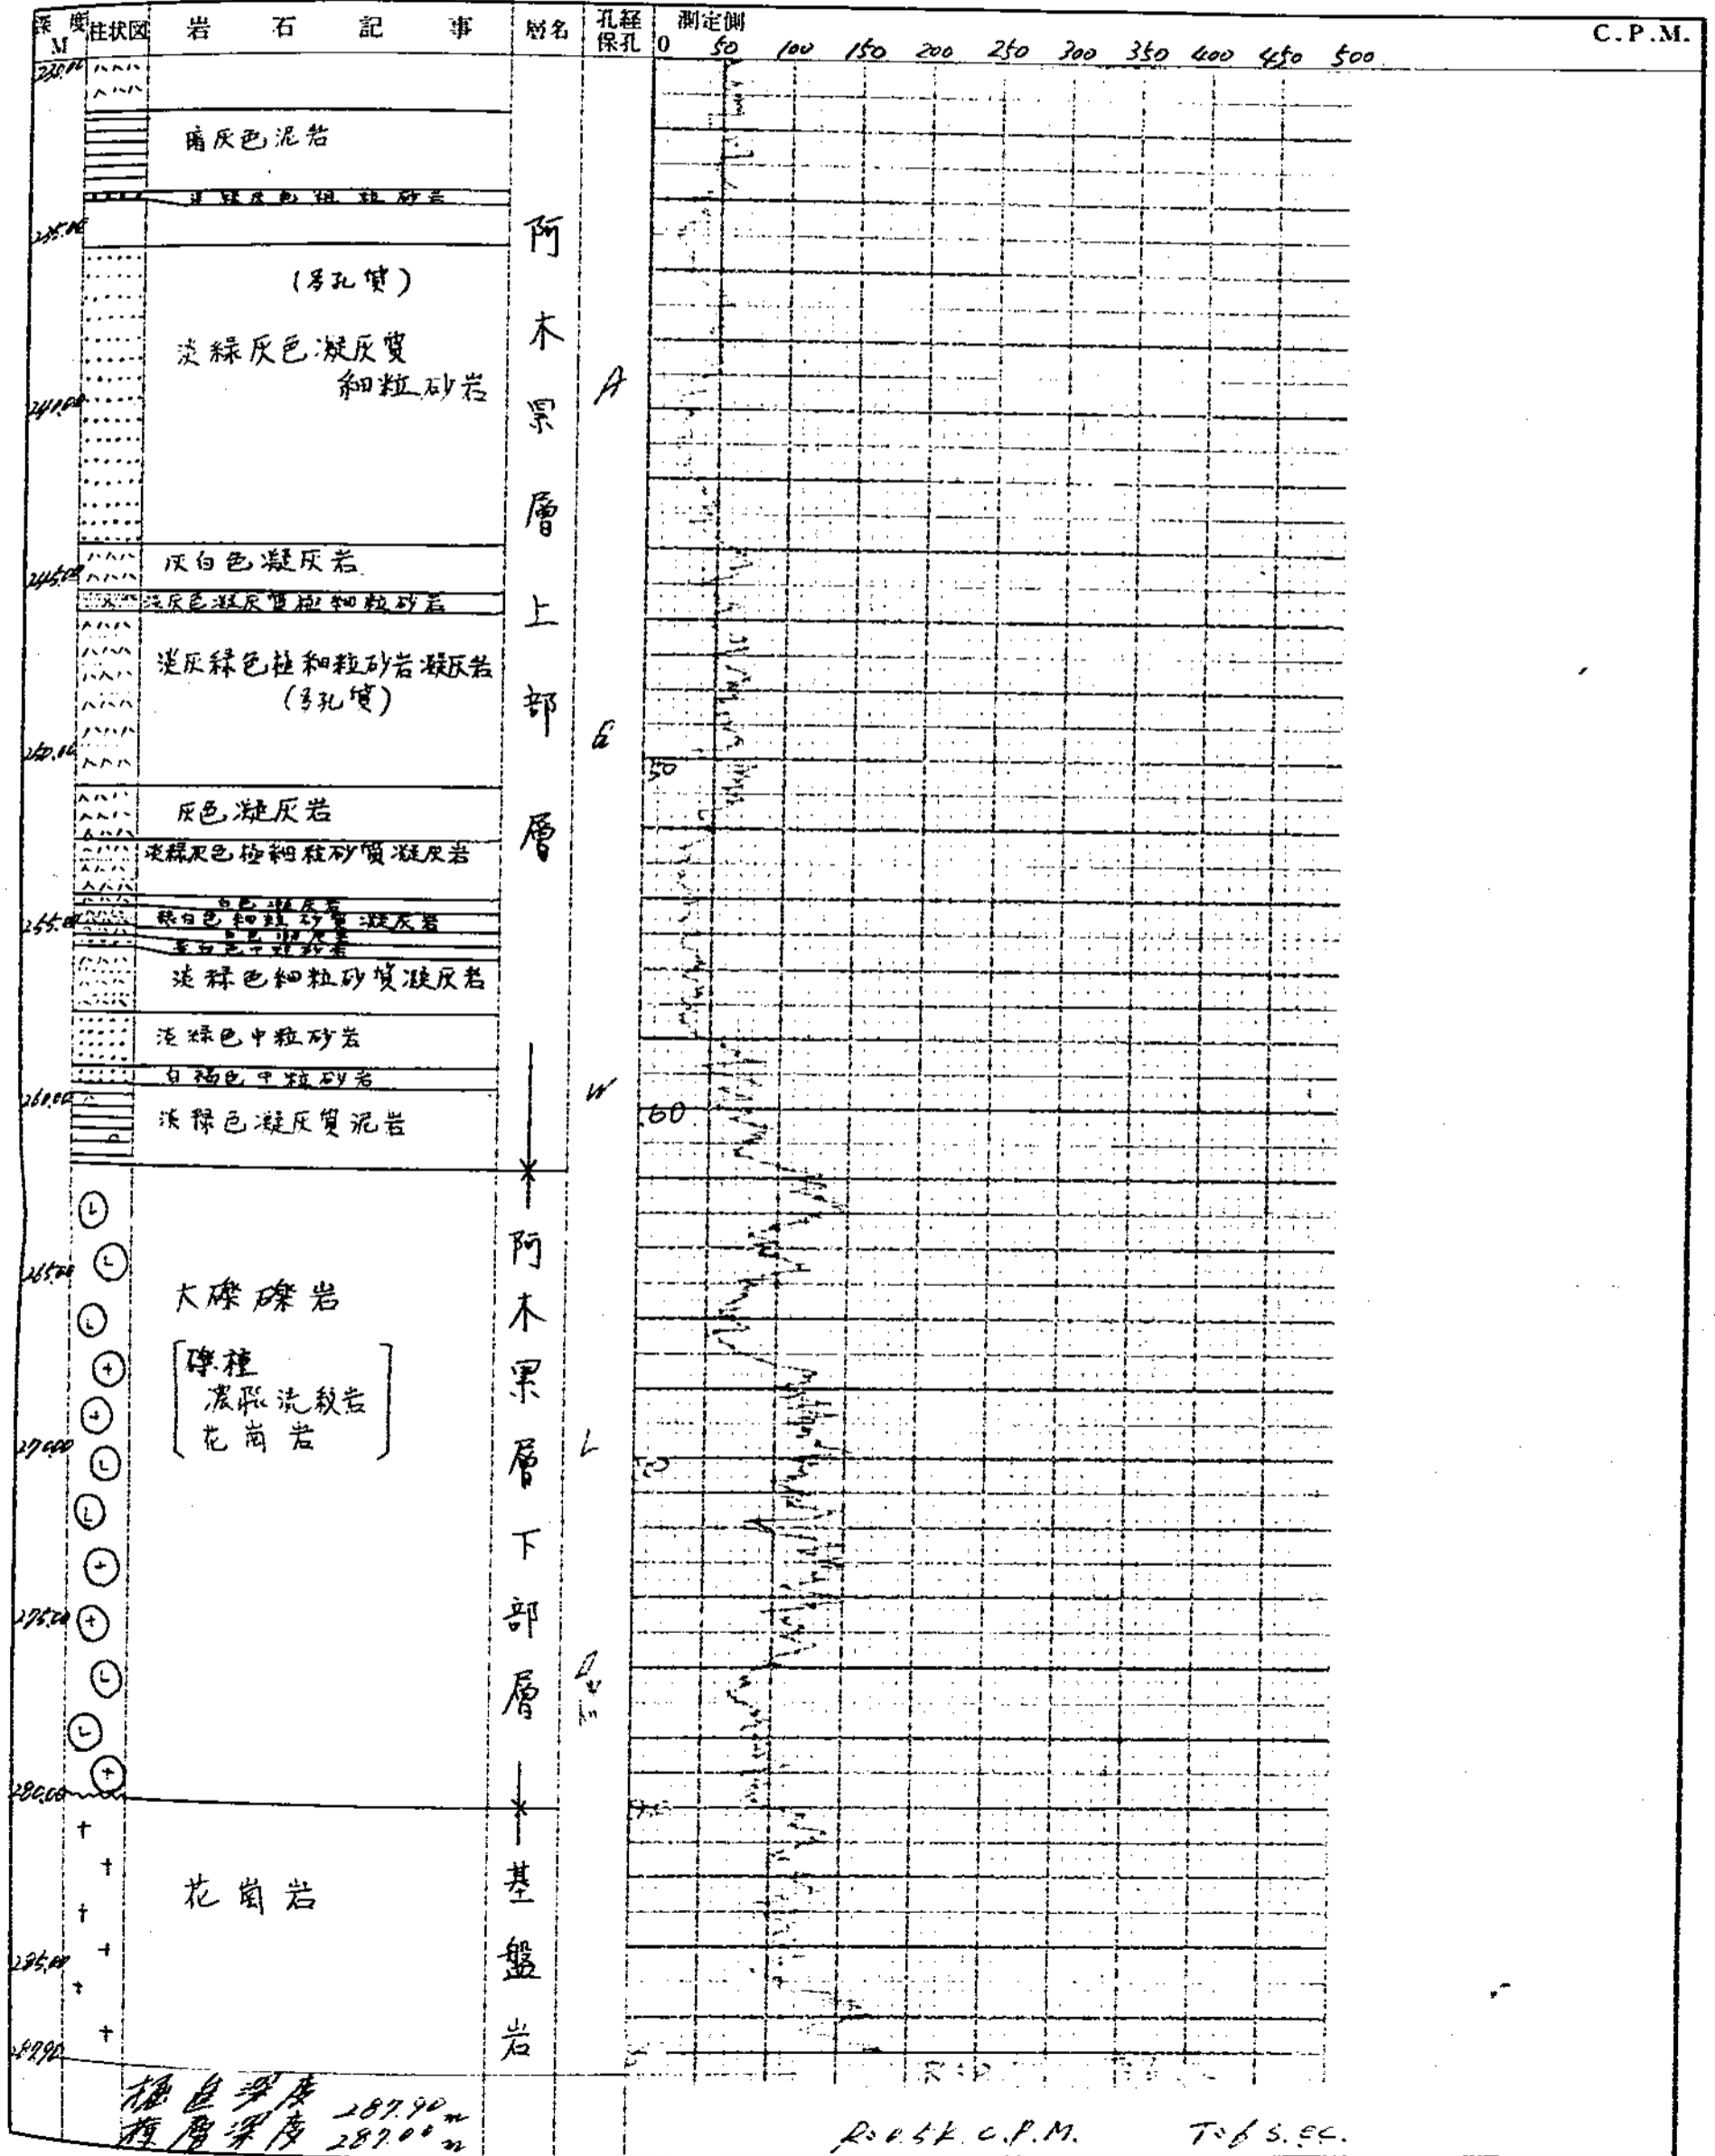 深度 M 柱状図 岩石記事 層名 孔経保孔 測定側 C.P.M.
0 50 100 150 200 250 300 350 400 450 500
230.00
暗灰色泥岩
淡緑灰色細粒砂岩
235.00
(多孔質)
淡緑灰色凝灰質
細粒砂岩
240.00
灰白色凝灰岩
245.00
淡灰色凝灰質極細粒砂岩
淡灰緑色極細粒砂岩凝灰岩
(多孔質)
250.00
50
灰色凝灰岩
淡緑灰色極細粒砂質凝灰岩
白色凝灰岩
255.00
緑白色細粒砂質凝灰岩
淡緑色細粒砂質凝灰岩
淡緑色中粒砂岩
白褐色中粒砂岩
260.00
60
淡緑色凝灰質泥岩
阿木累層上部層
A
W
265.00
大礫礫岩
礫種
濃飛流紋岩
花崗岩
270.00
275.00
阿木累層下部層
L
280.00
花崗岩
285.00
287.90
基盤岩
掘進深度 287.90m
検層深度 287.00m
R=0.5K. C.P.M. T=6 S.EC.